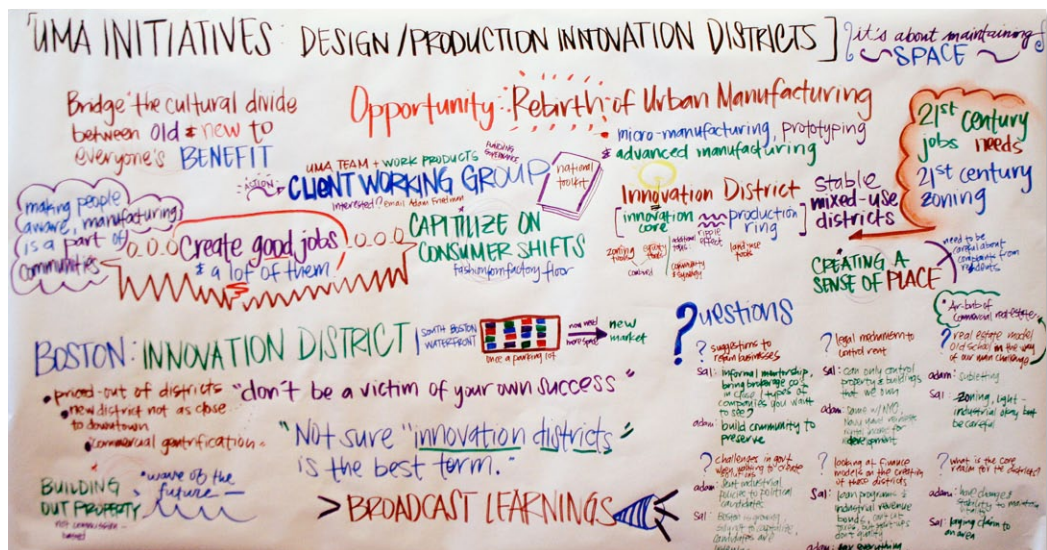 [UMA INITIATIVES: DESIGN/PRODUCTION INNOVATION DISTRICTS]
it's about maintaining
SPACE
Bridge the cultural divide
between old & new to
everyone's BENEFIT
Opportunity: Rebirth of Urban Manufacturing
micro-manufacturing, prototyping
& advanced manufacturing
21st century
jobs needs
21st century
zoning
UMA TEAM + WORK PRODUCTS
ACTION:
CLIENT WORKING GROUP
interested? email Adam
national
toolkit
making people
aware, manufacturing
is a part of
communities
Create good jobs
& a lot of them!
CAPITILIZE ON
CONSUMER SHIFTS
fashion from factory floor
Innovation District
[innovation
core
production]
ring
zoning
tools
equity
tools
ripple
effect
land-use
tools
community
& synergy
stable
mixed-use
districts
CREATING A
SENSE OF PLACE
need to be
careful about
complaints from
residents
BOSTON: INNOVATION DISTRICT
SOUTH BOSTON
WATERFRONT
once a parking lot
now need
more space!
new
market
priced-out of districts
new district not as close
to downtown
commercial gentrification
"don't be a victim of your own success"
"Not sure "innovation districts"
is the best term."
BUILDING
OUT PROPERTY
not commission-
based
wave of the
future —
> BROADCAST LEARNINGS
?uestions
? suggestions to
retain businesses
Sal: informal mentorship,
bring brokerage co's
in close / types of
companies you want
to see?
adam: build community to
preserve
? challenges in gov't
when working to create
adam: sent industrial
policies to political
candidates
Sal: Boston is growing,
candidates are
? legal mechanism to
control rent
Sal: can only control
property & buildings
that we own
adam: same w/ NYC,
development
? looking at finance
models on the creation
of these districts
Sal: loan programs &
industrial revenue
bonds,
don't qualify
adam: everything
commercial real estate
? real estate model
old school in the way
of our main challenge
adam: subletting
Sal: zoning, light-
industrial okay but
be careful
? what is the core
realm for the districts?
adam:
stability to
Sal: laying claim to
an area